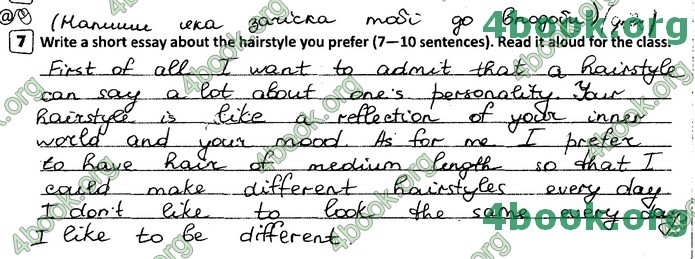 (Напиши яка зачіска тобі до вподоби)
7 Write a short essay about the hairstyle you prefer (7—10 sentences). Read it aloud for the class.
First of all I want to admit that a hairstyle
can say a lot about one's personality. Your
hairstyle is like a reflection of your inner
world and your mood. As for me I prefer
to have hair of medium length so that I
could make different hairstyles every day
I don't like to look the same every day
I like to be different.
4book.org
4book.org
4book.org